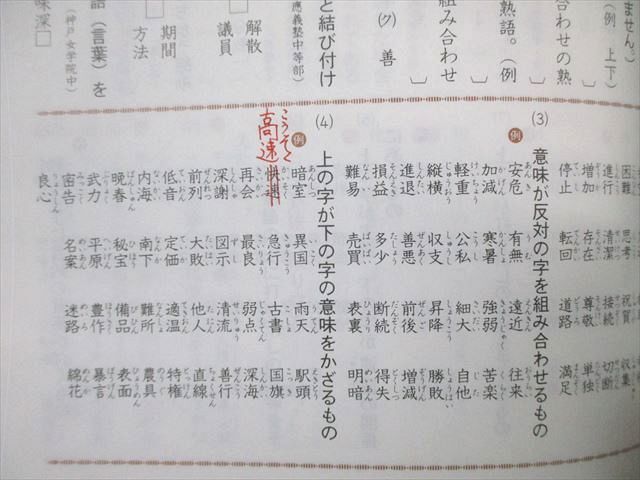 ません。)
(例 上下)
合わせの熟
熟語。(例
組み合わせ
(ク) 善
と結び付け
應義塾中等部)
解散
議員
期間
方法
語(言葉)を
(神戸女学院中)
味深
困難 思考 祝賀 収集
進行 清潔 接続 切断
増加 存在 尊敬 単独
停止 転回 道路 満足
(3) 意味が反対の字を組み合わせるもの
例 安危 有無 遠近 往来
加減 寒暑 強弱 苦楽
軽重 公私 細大 自他
縦横 収支 昇降 勝敗
進退 善悪 前後 増減
損益 多少 断続 得失
難易 売買 表裏 明暗
(4) 上の字が下の字の意味をかざるもの
例 暗室 異国 雨天 駅頭
快速 急行 古書 国旗
こうそく
高速
再会 最良 弱点 深海
深謝 図示 清流 善行
前列 大敗 他人 直線
低音 定価 適温 特権
内海 南下 難所 農具
晩春 秘宝 備品 表面
武力 平原 豊作 暴言
密告 名案 迷路 綿花
良心